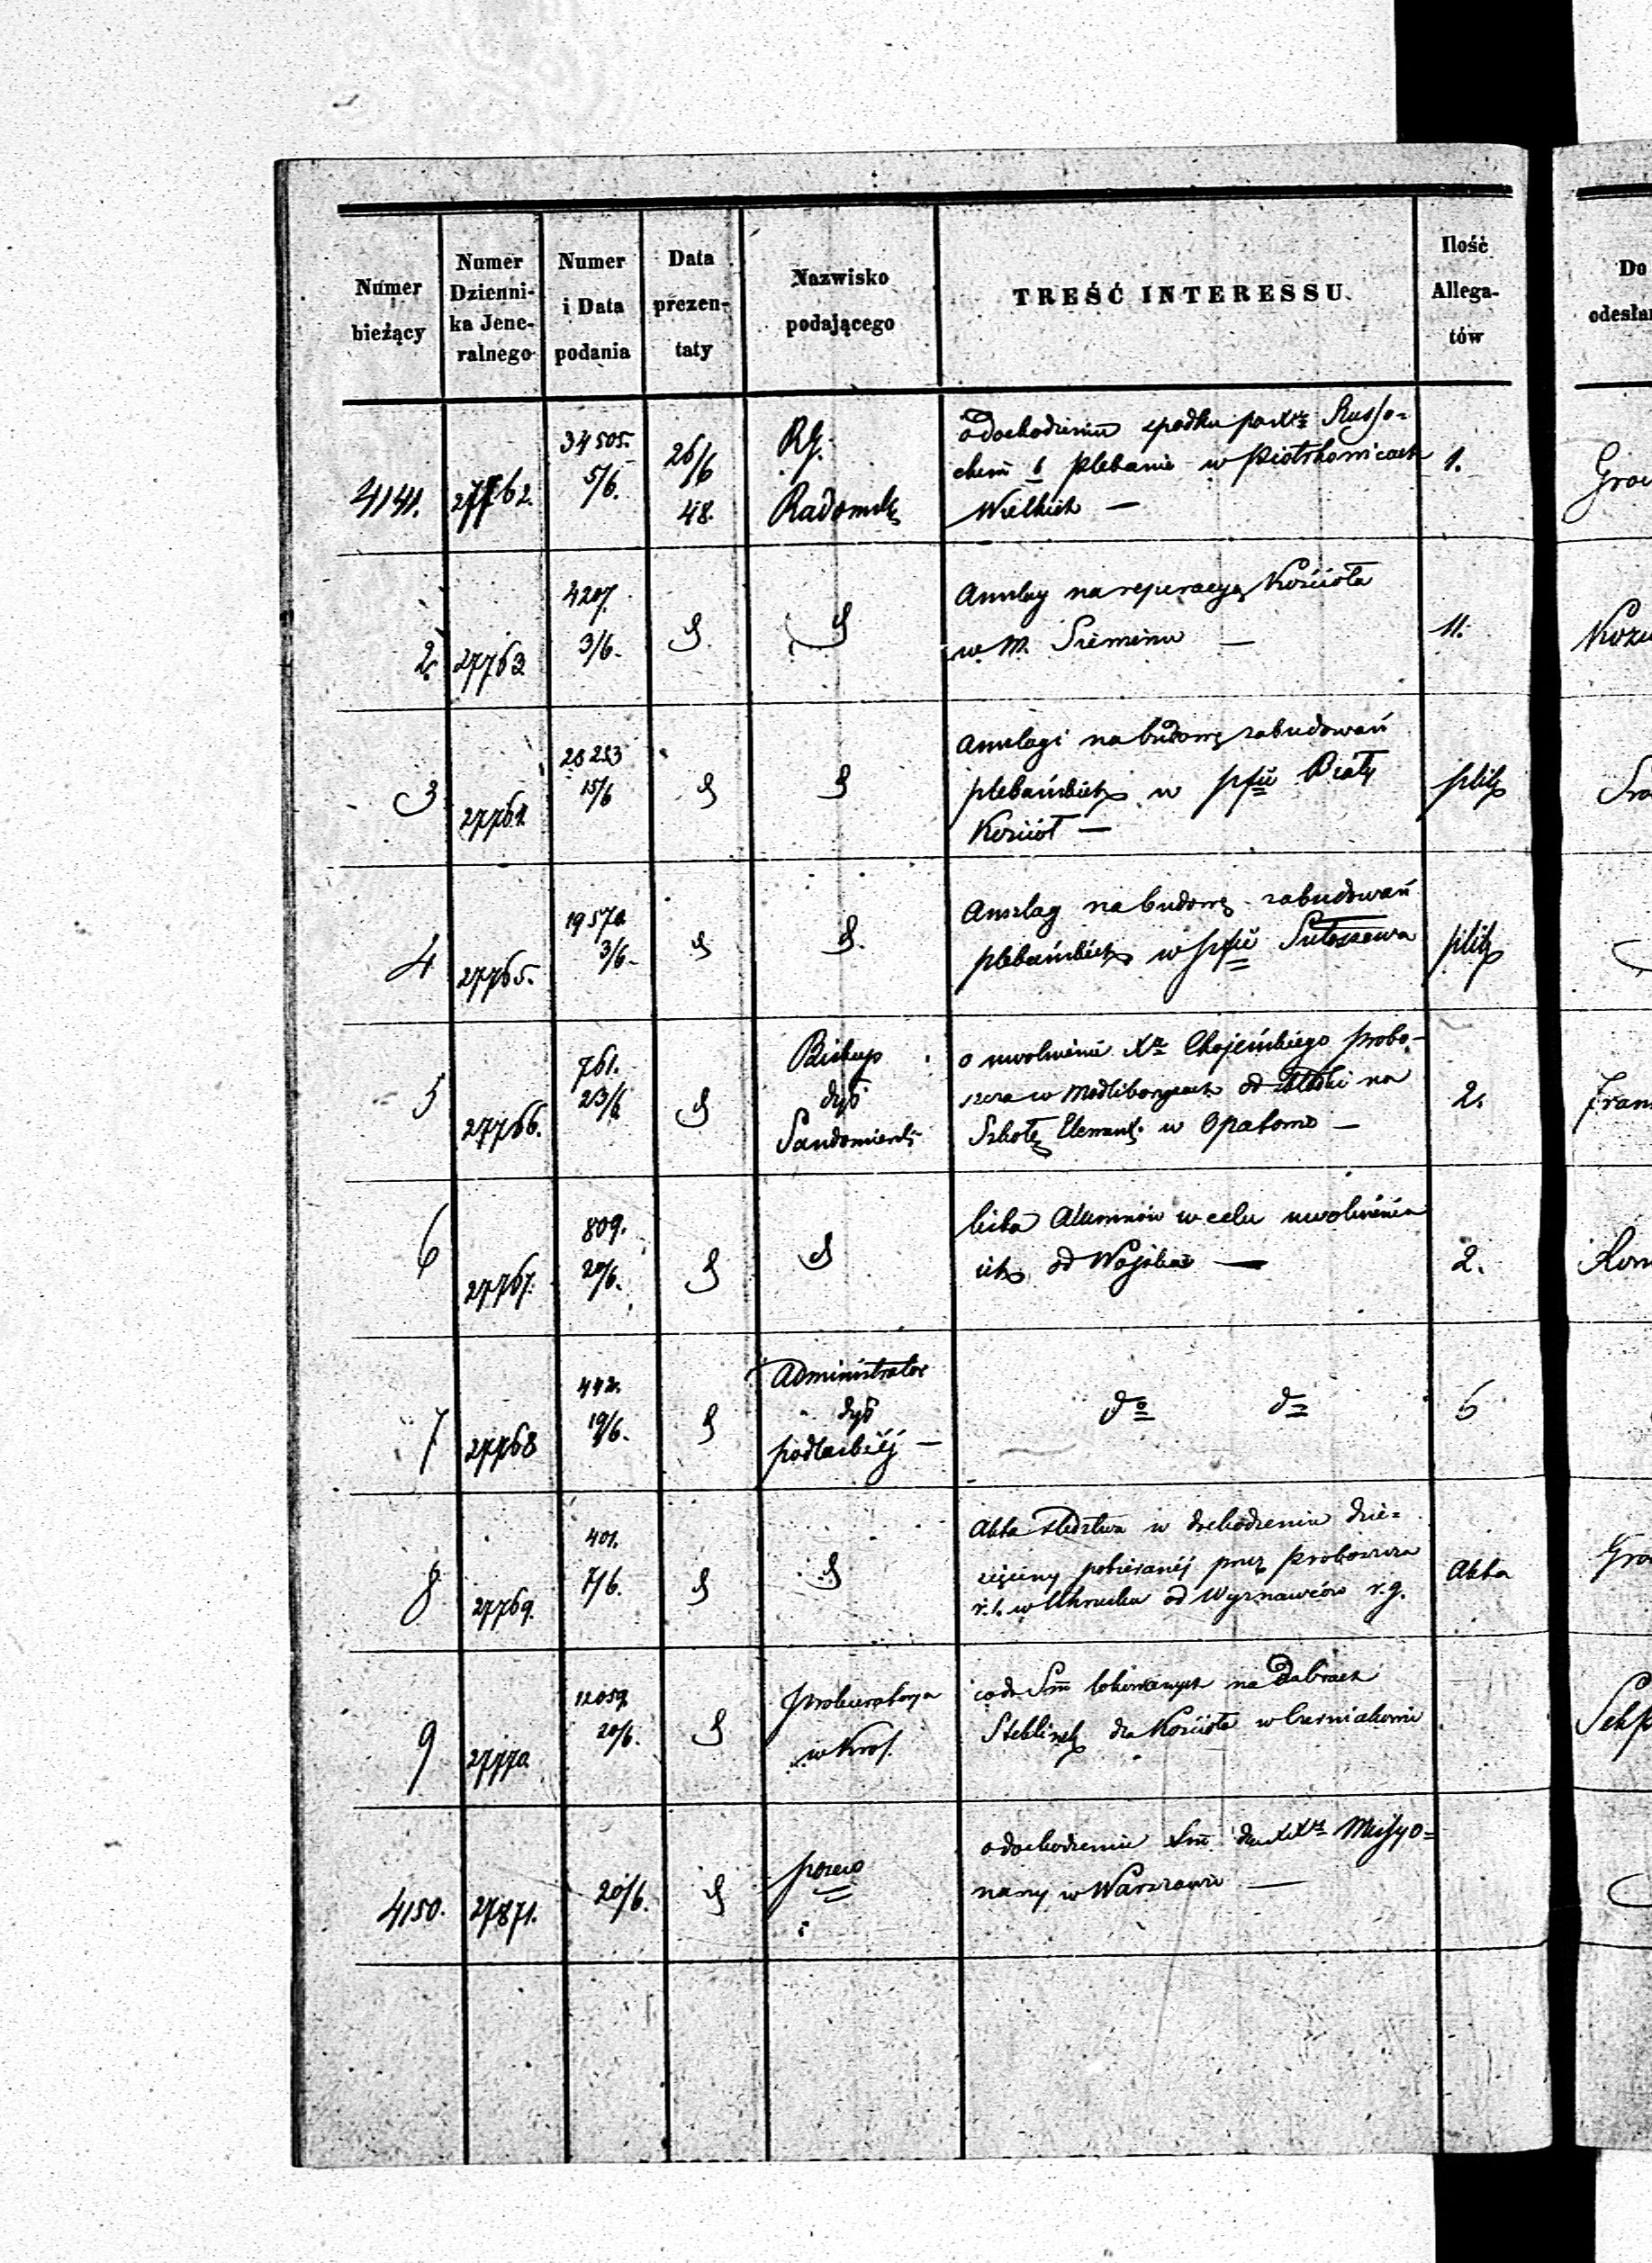 Numer bieżący
Numer Dzienni-
ka Jene-
ralnego
Numer i Data podania
Data prezen-
taty
Nazwisko podającego
TREŚĆ INTERESSU.
Ilość Allega-
tów
Do
odesła
4141.
27762.
34505.
5/6.
26/6
48.
RG.
Radomsk
odochodzeniu spadku po Xzu Russo-
chem b plebanie w Piotrkowicach
Wielkich —
1.
2.
27763
4207.
3/6.
Anszlag na reperacyą Kościoła
w M. Siemieniu —
11.
3
27764
15/6
Anszlagi na budowę zabudowań
plebańskich w Biały
Kościół —
plik
4
27765.
19570
3/6.
Anszlag na budowę zabudowań
plebańskich w Sułoszowa
plik
5
27766.
761.
23/6
Biskup
dyó
Sandomiersk
o uwolnienie Xa Chojeńskiego probo-
szcza w Modliborzycach od składki na
Szkołę Element. w Opatowie —
2.
Fran
6
27767.
809.
20/6.
lista Alumnów w celu uwolnienia
ich od Wojska —
2.
7
27768
442.
19/6.
Administrator
dyó
podlaskiéj —
do do
6
8
27769.
401.
7/6.
Akta śledztwa w dochodzeniu dzie-
sięciny pobieranéj przez proboszcza
r. l. w Uhrusku od Wyznawców r. g.
Akta
9
27770
12059
20/6.
Prokuratorya
w Król.
co do Sum lokowanych na Dobrach
dla Kościoła w Czerniakowie
4150.
27871.
20/6.
pozew
odochodzenie Sum dla XXy Missyo-
narzy w Warszawie —